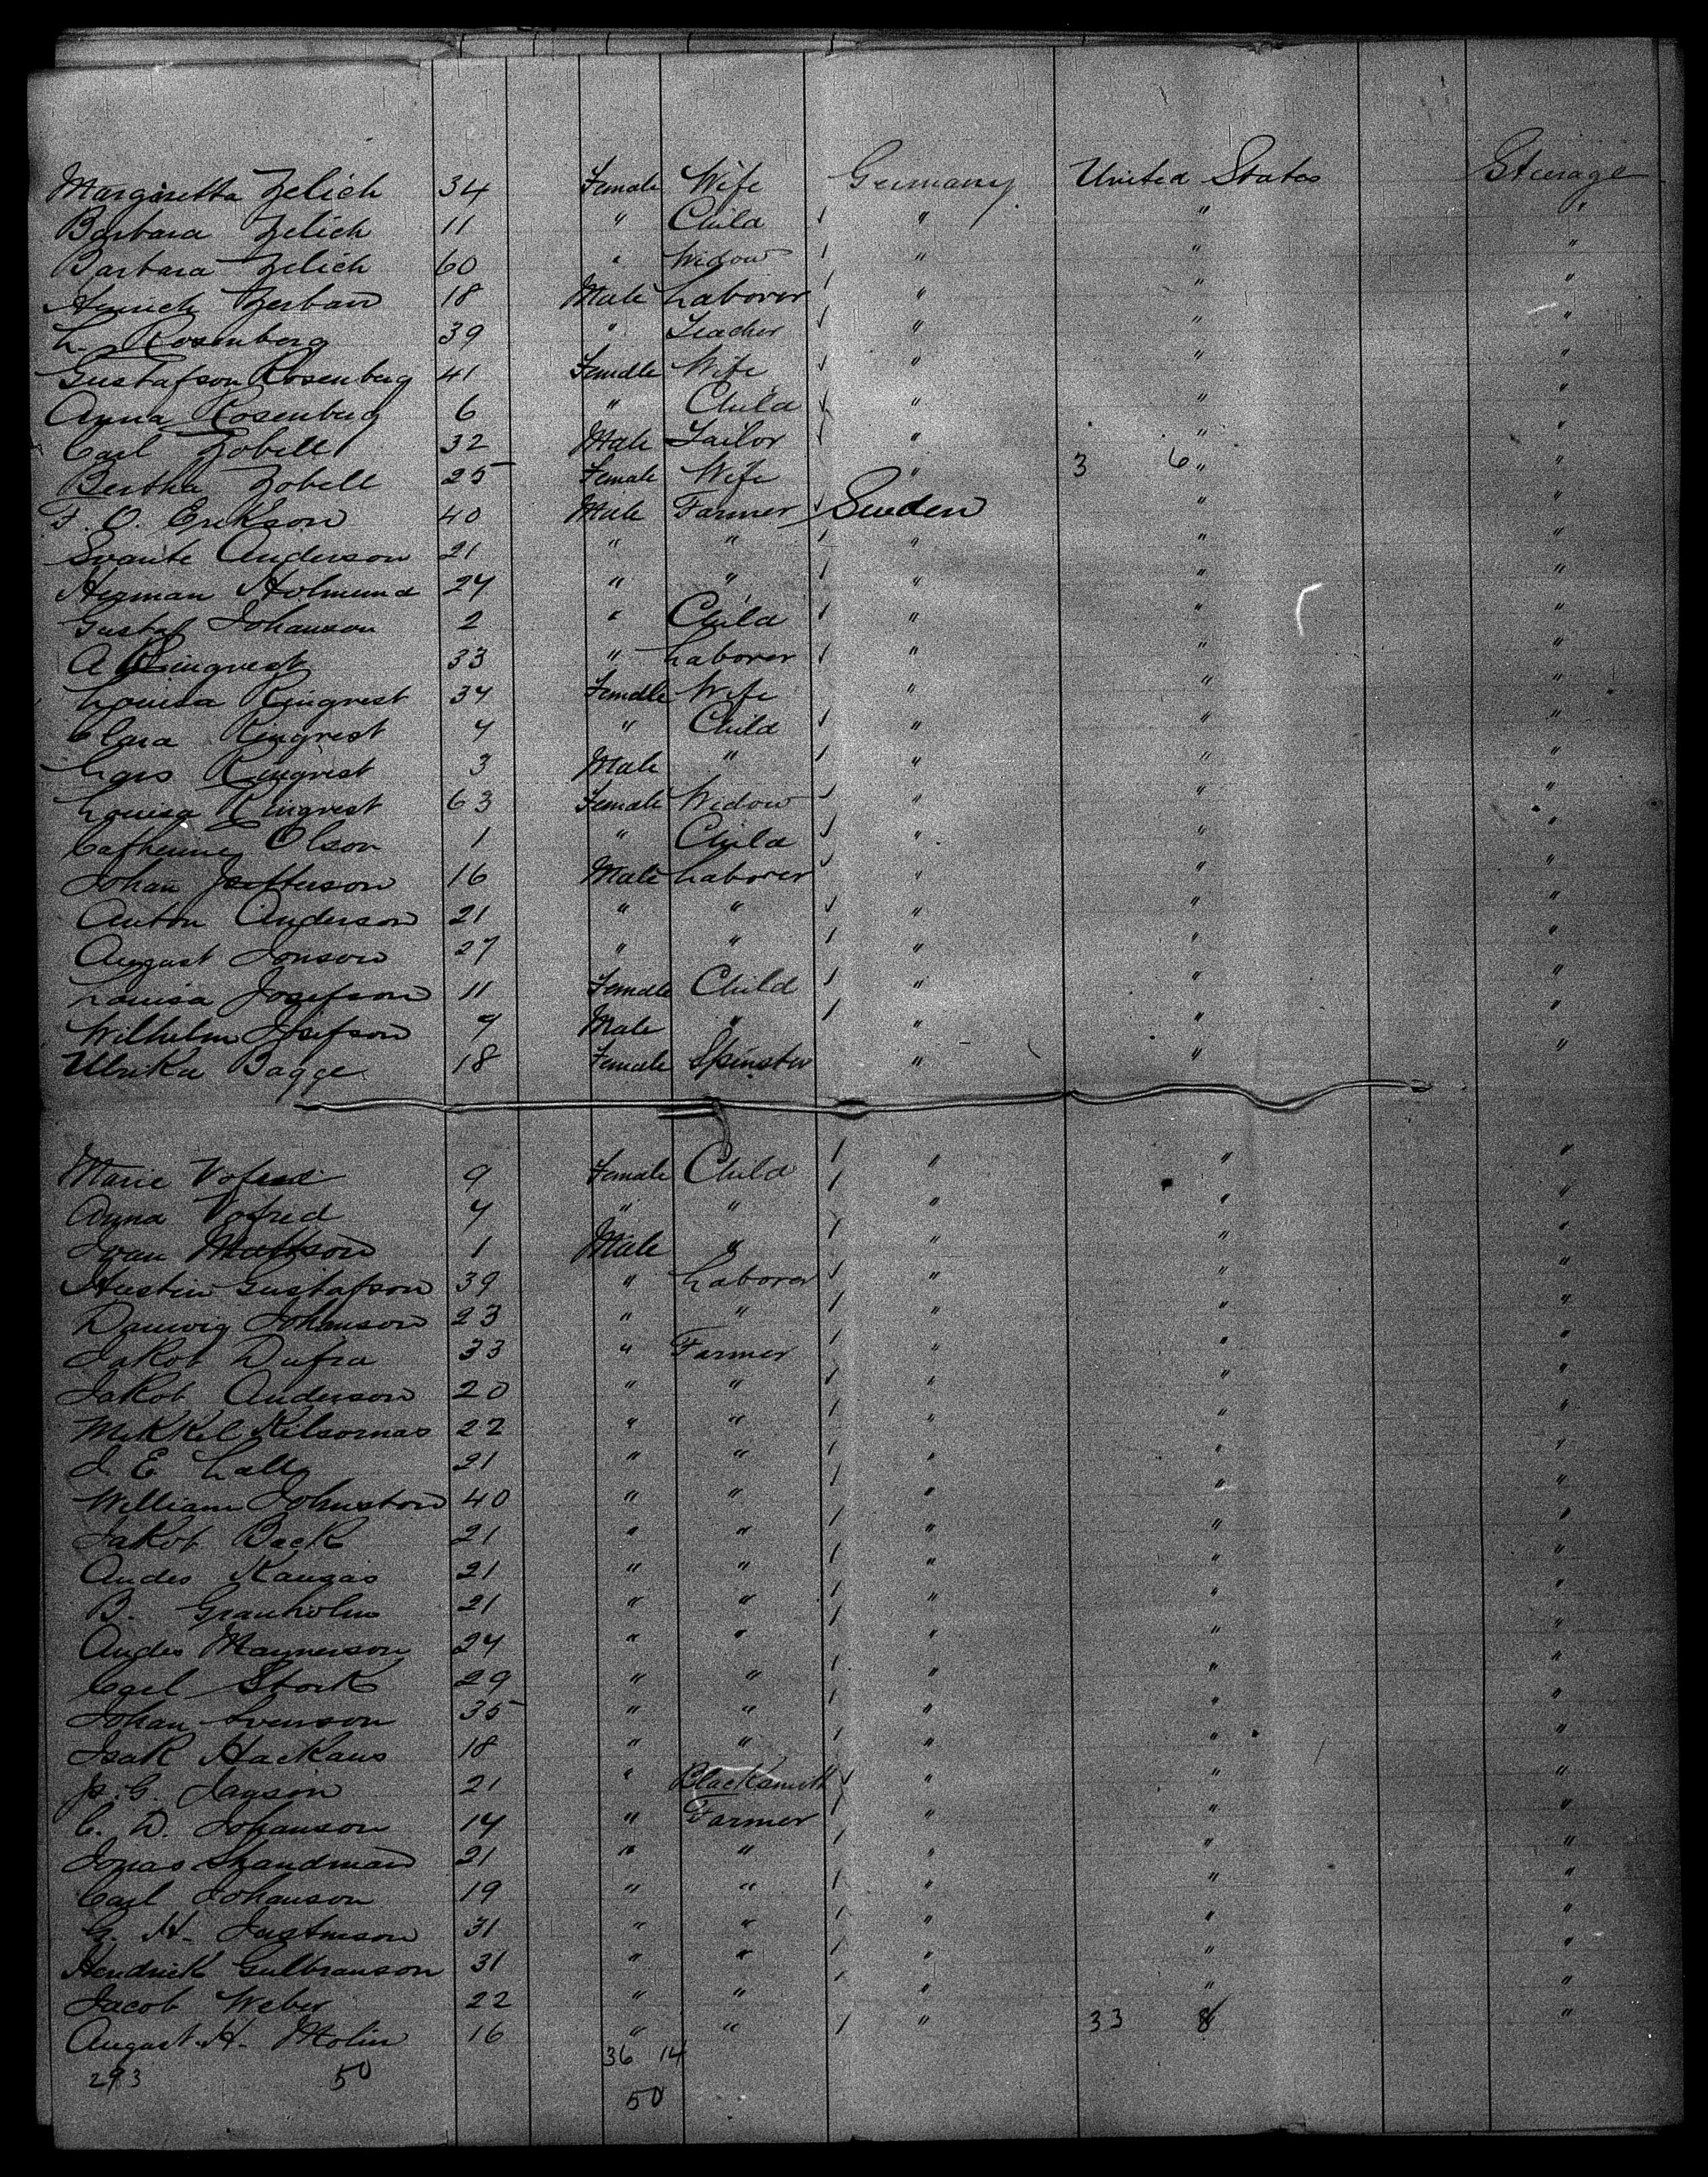 Margaretta Zelich 34 Female Wife Germany United States Steerage
Barbara Zelich 11 " Child " " "
Barbara Zelich 60 " Widow " " "
Heinrich Zerban 18 Male Laborer " " "
L. Rosenberg 39 " Teacher " " "
Gustafson Rosenberg 41 Female Wife " " "
Anna Rosenberg 6 " Child " " "
Carl Zobell 32 Male Tailor " " "
Bertha Zobell 25 Female Wife " 3 6 " "
F. O. Erikson 40 Male Farmer Sweden " "
Svante Anderson 21 " " " " "
Herman Holmund 24 " " " " "
Gustaf Johanson 2 " Child " " "
A Ringvest 33 " Laborer " " "
Louisa Ringvest 34 Female Wife " " "
Clara Ringvest 4 " Child " " "
Lars Ringvest 3 Male " " " "
Louisa Ringvest 63 Female Widow " " "
Catherine Olson 1 " Child " " "
Johan 16 Male Laborer " " "
Anton Anderson 21 " " " " "
August Jonson 27 " " " " "
Louisa Josefson 11 Female Child " " "
Wilhelm Josefson 9 Male " " " "
Ulrika Bagge 18 Female Spinster " " "
Marie Vofred 9 Female Child " " "
Anna Vofred 4 " " " " "
Ivan Mattson 1 Male " " " "
Gustafson 39 " Laborer " " "
Johanson 23 " " " " "
Jakob Dufra 33 " Farmer " " "
Jakob Anderson 20 " " " " "
Mikkel 22 " " " " "
J. E. 21 " " " " "
William Johnston 40 " " " " "
Jakob Back 21 " " " " "
Andes Kangas 21 " " " " "
B. Granholm 21 " " " " "
Andes Maynerson 24 " " " " "
Carl Stork 29 " " " " "
Johan Svenson 35 " " " " "
Isak Hackaus 18 " " " " "
J. G. Jagson 21 " Blacksmith " " "
C. D. Johanson 14 " Farmer " " "
Jonas Strandman 21 " " " " "
Carl Johanson 19 " " " " "
G. H. Justinson 31 " " " " "
Hendrick Gulbranson 31 " " " " "
Jacob Weber 22 " " " " "
August H. Molin 16 " " " 33 8 "
36 14
293 50
50